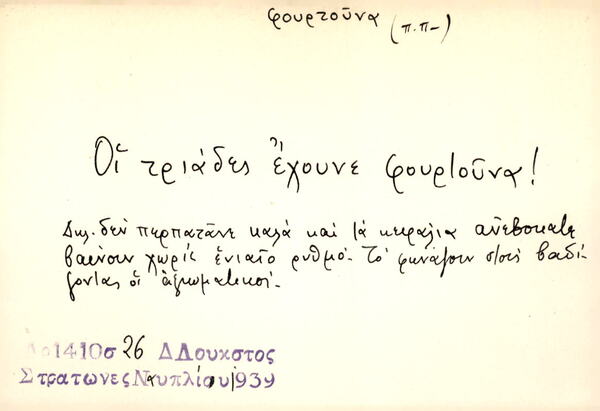 φουρτοῦνα (π.π-)
Οἵ τριάδες ἔχουνε φουρτοῦνα!
Δηλ. δέν περπατᾶνε καλά καί τά κεφάλια ἀνεβοκατε
βαίνουν χωρίς ἑνιαῖο ρυθμό. Τό φωνάζουν στούς βαδί-
ζοντας οἱ ἀξιωματικοί.
1410σ 26 Δ Λουκστος
Στρατωνες Ναυπλίου 1939